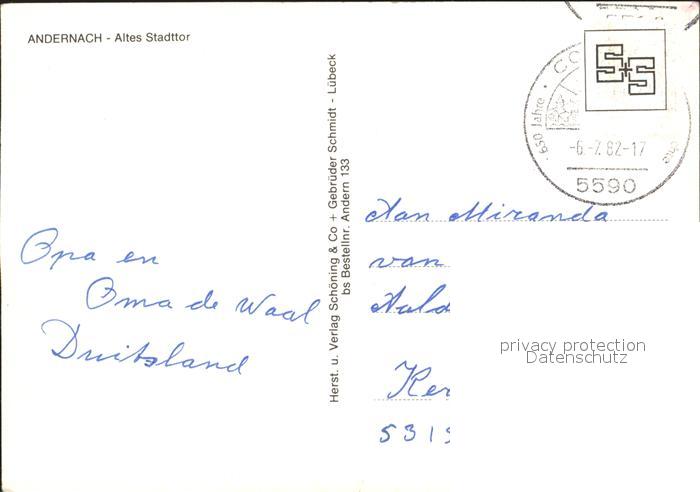 ANDERNACH - Altes Stadttor
Opa en
Oma de Waal
Duitsland
Herst. u. Verlag Schöning & Co + Gebrüder Schmidt - Lübeck
bs Bestellnr. Andern 133
S+S
650 Jahre
-6.-7.82-17
5590
Aan Miranda
van
Ker
531
privacy protection
Datenschutz